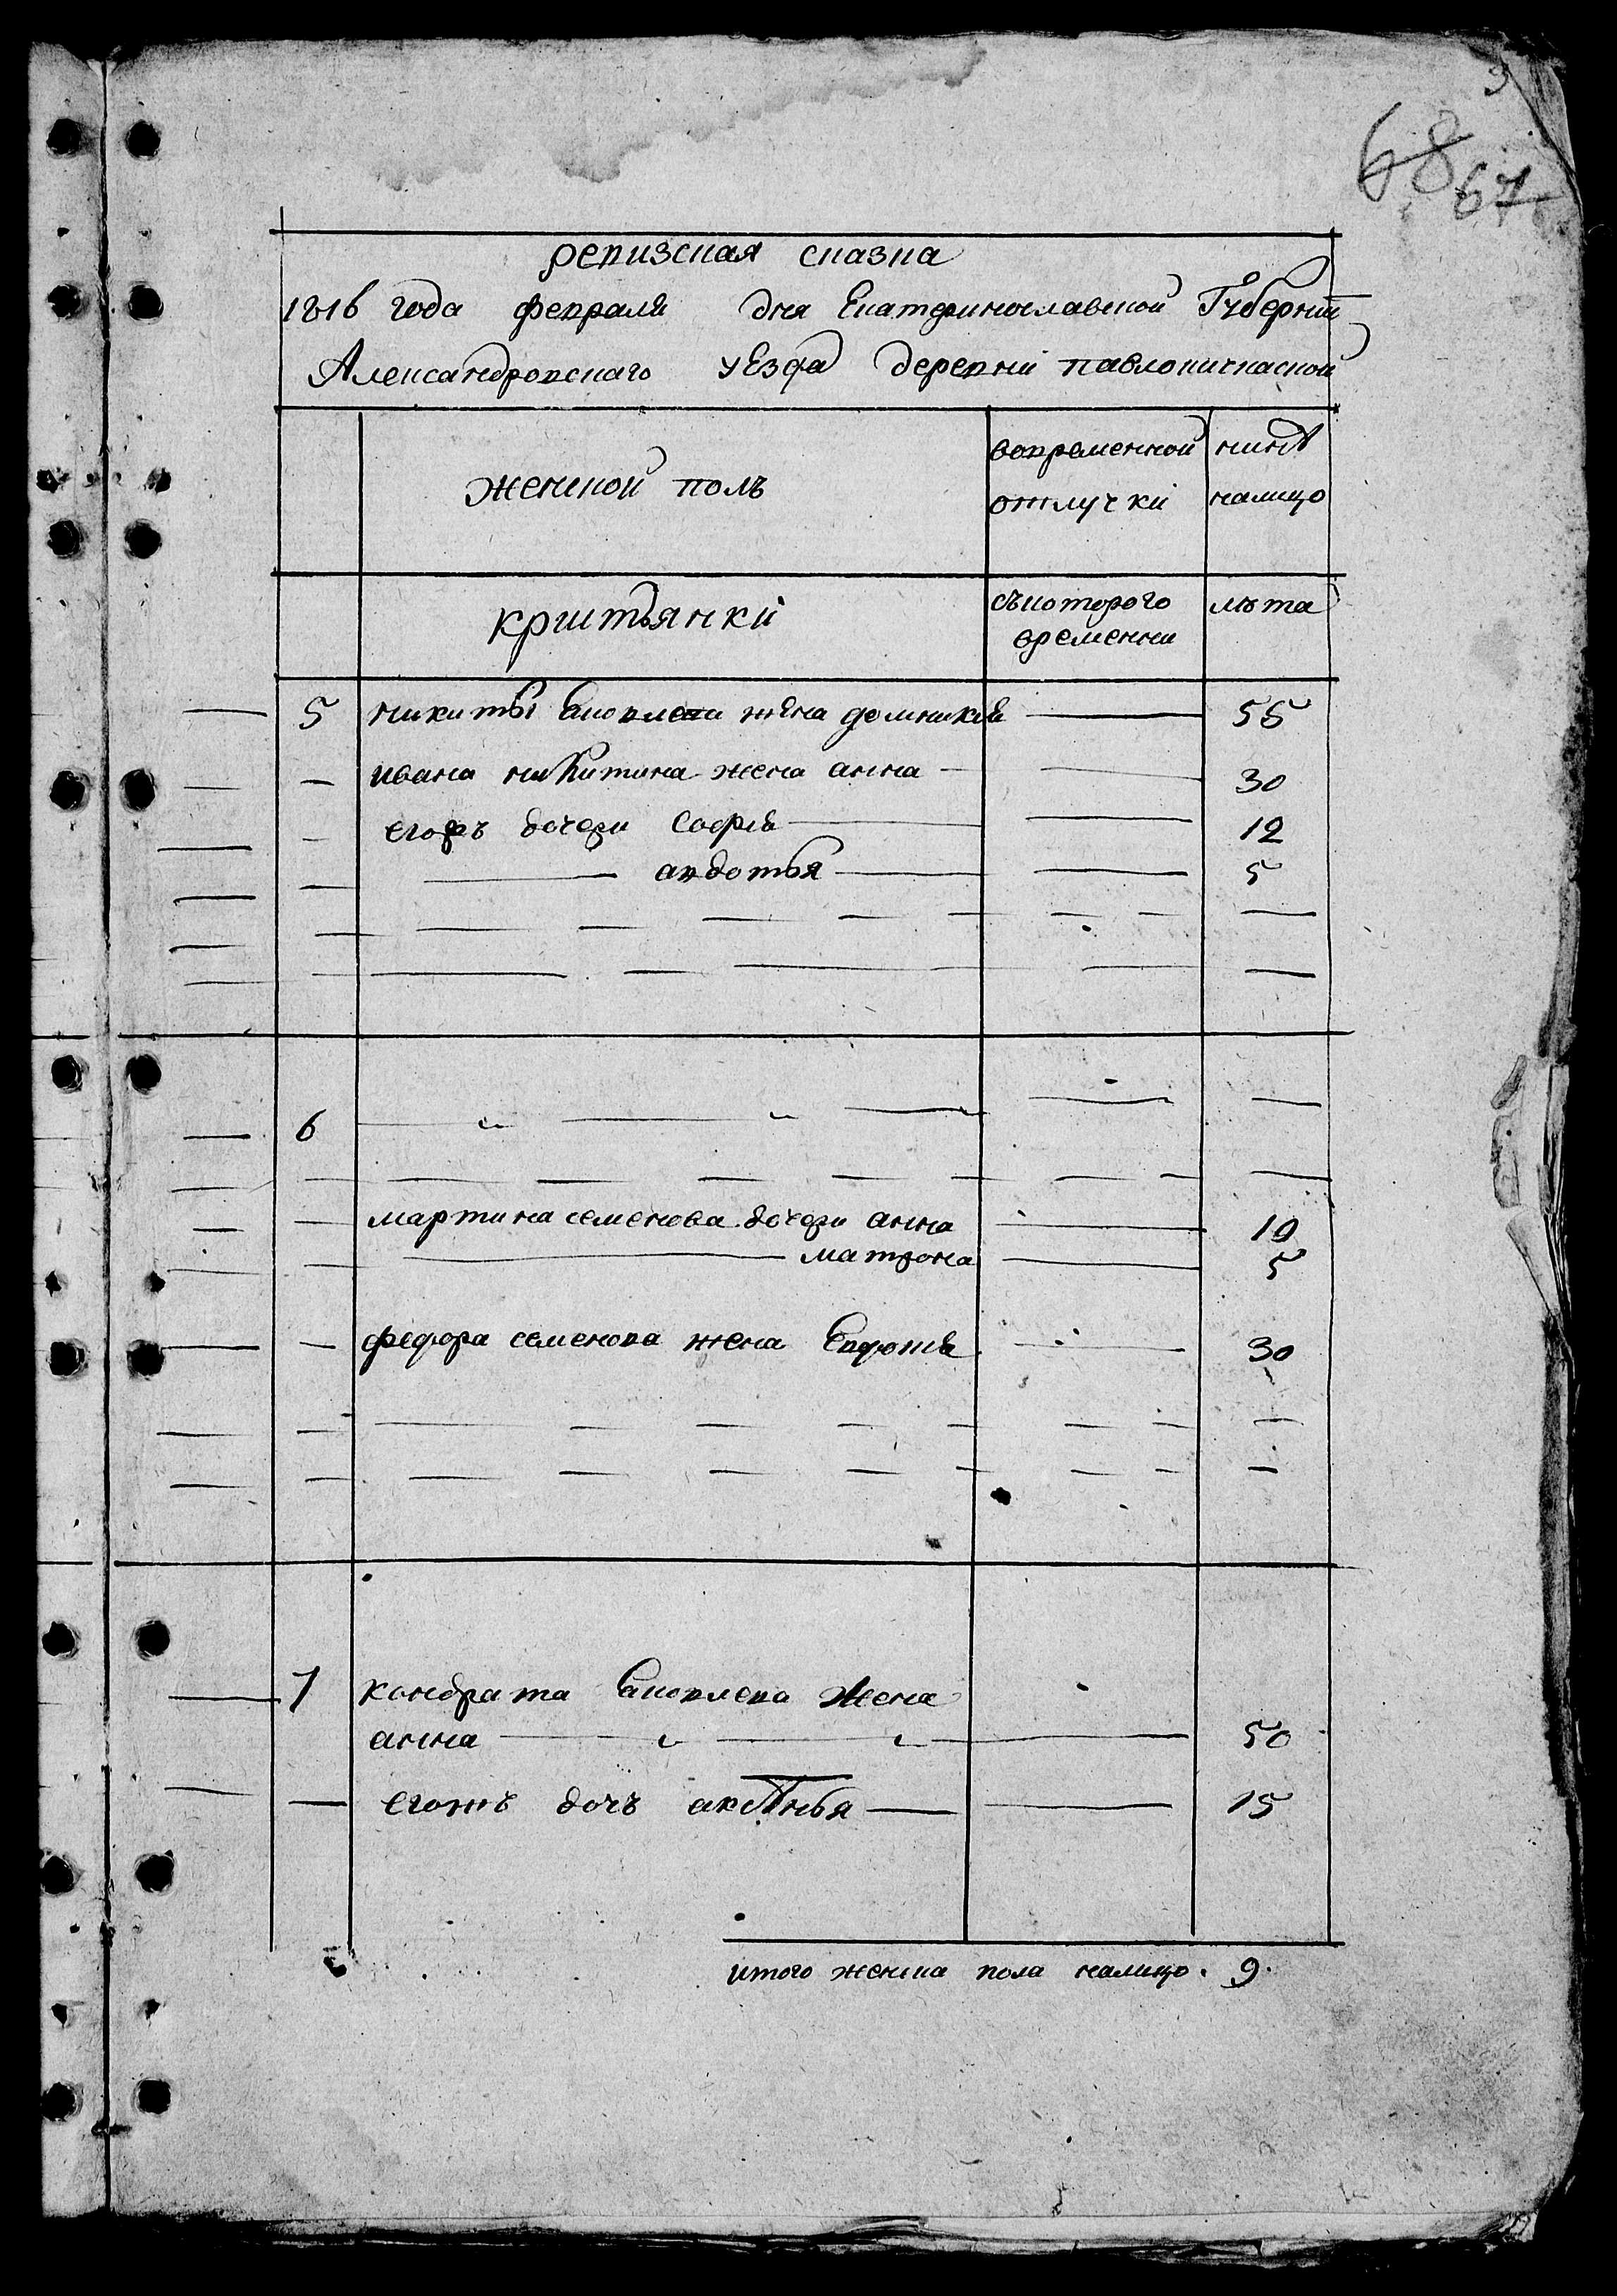 68 67
ревизская сказка
1816 года февраля дня Екатеринославской Губерніи
Александровскаго уезда деревни павлокичкаской
женской полъ
вовременной отлучки
нинѣ налицо
криштьянки
съкоторого времении
лѣта
5 никиты яковлева жена домникия 55
ивана никитина жена анна 30
егожъ дочери софия 12
авдотья 5
6
мартина семенова дочери анна 10
матрона 5
федора семенова жена Евдокия 30
7 кондрата яковлева жена
анна 50
егожъ дочъ аксінья 15
итого женска пола налицо. 9.